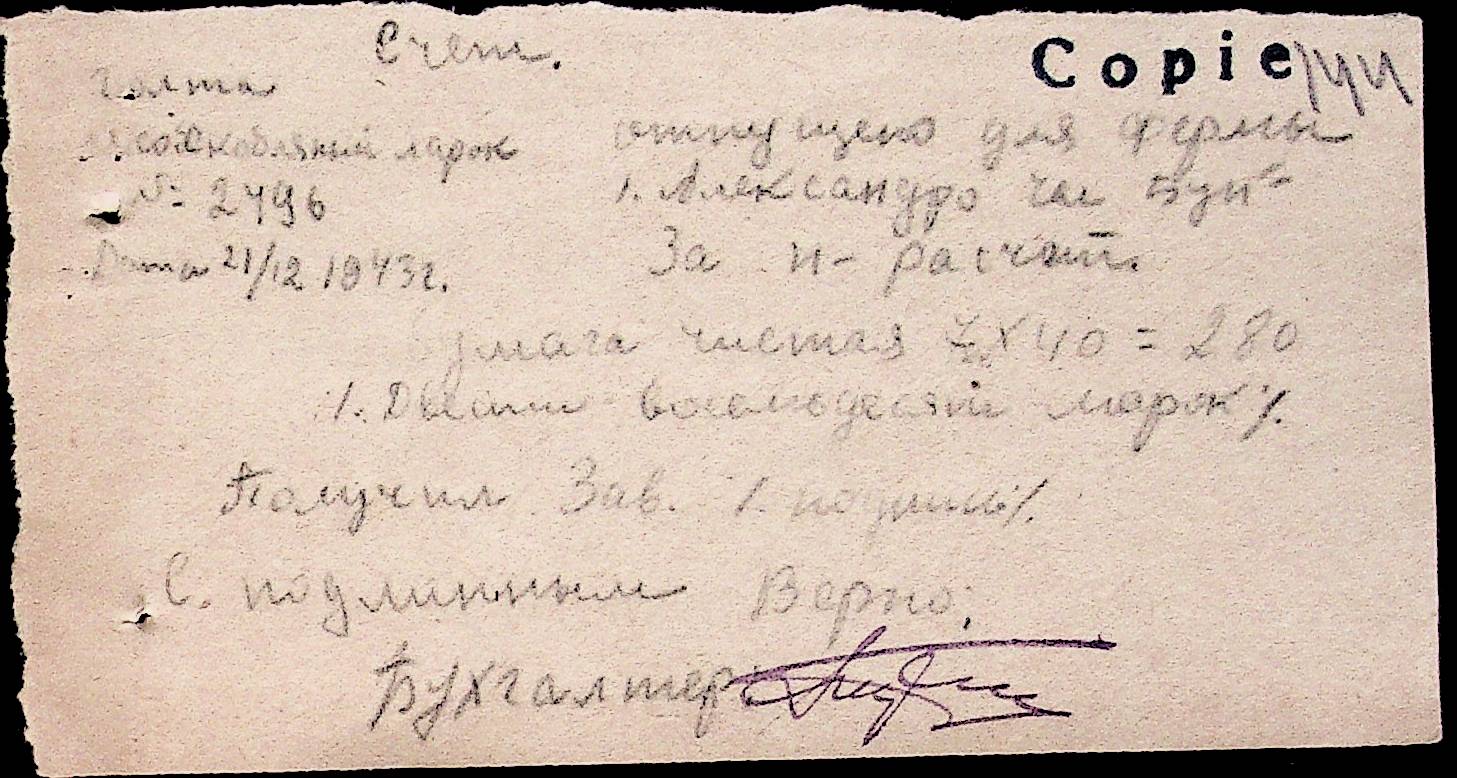 Счет.
Copie
Голта
ларок
№ 2496
Дата 21/12 1943 г.
отпущено для фермы
1. Александро
За н- расчет.
Бумага чистая 7 х 40 = 280
/. Двести восемьдесят марок /.
Получил Зав. /. подпись /.
С. подлинным Верно:
Бухгалтер